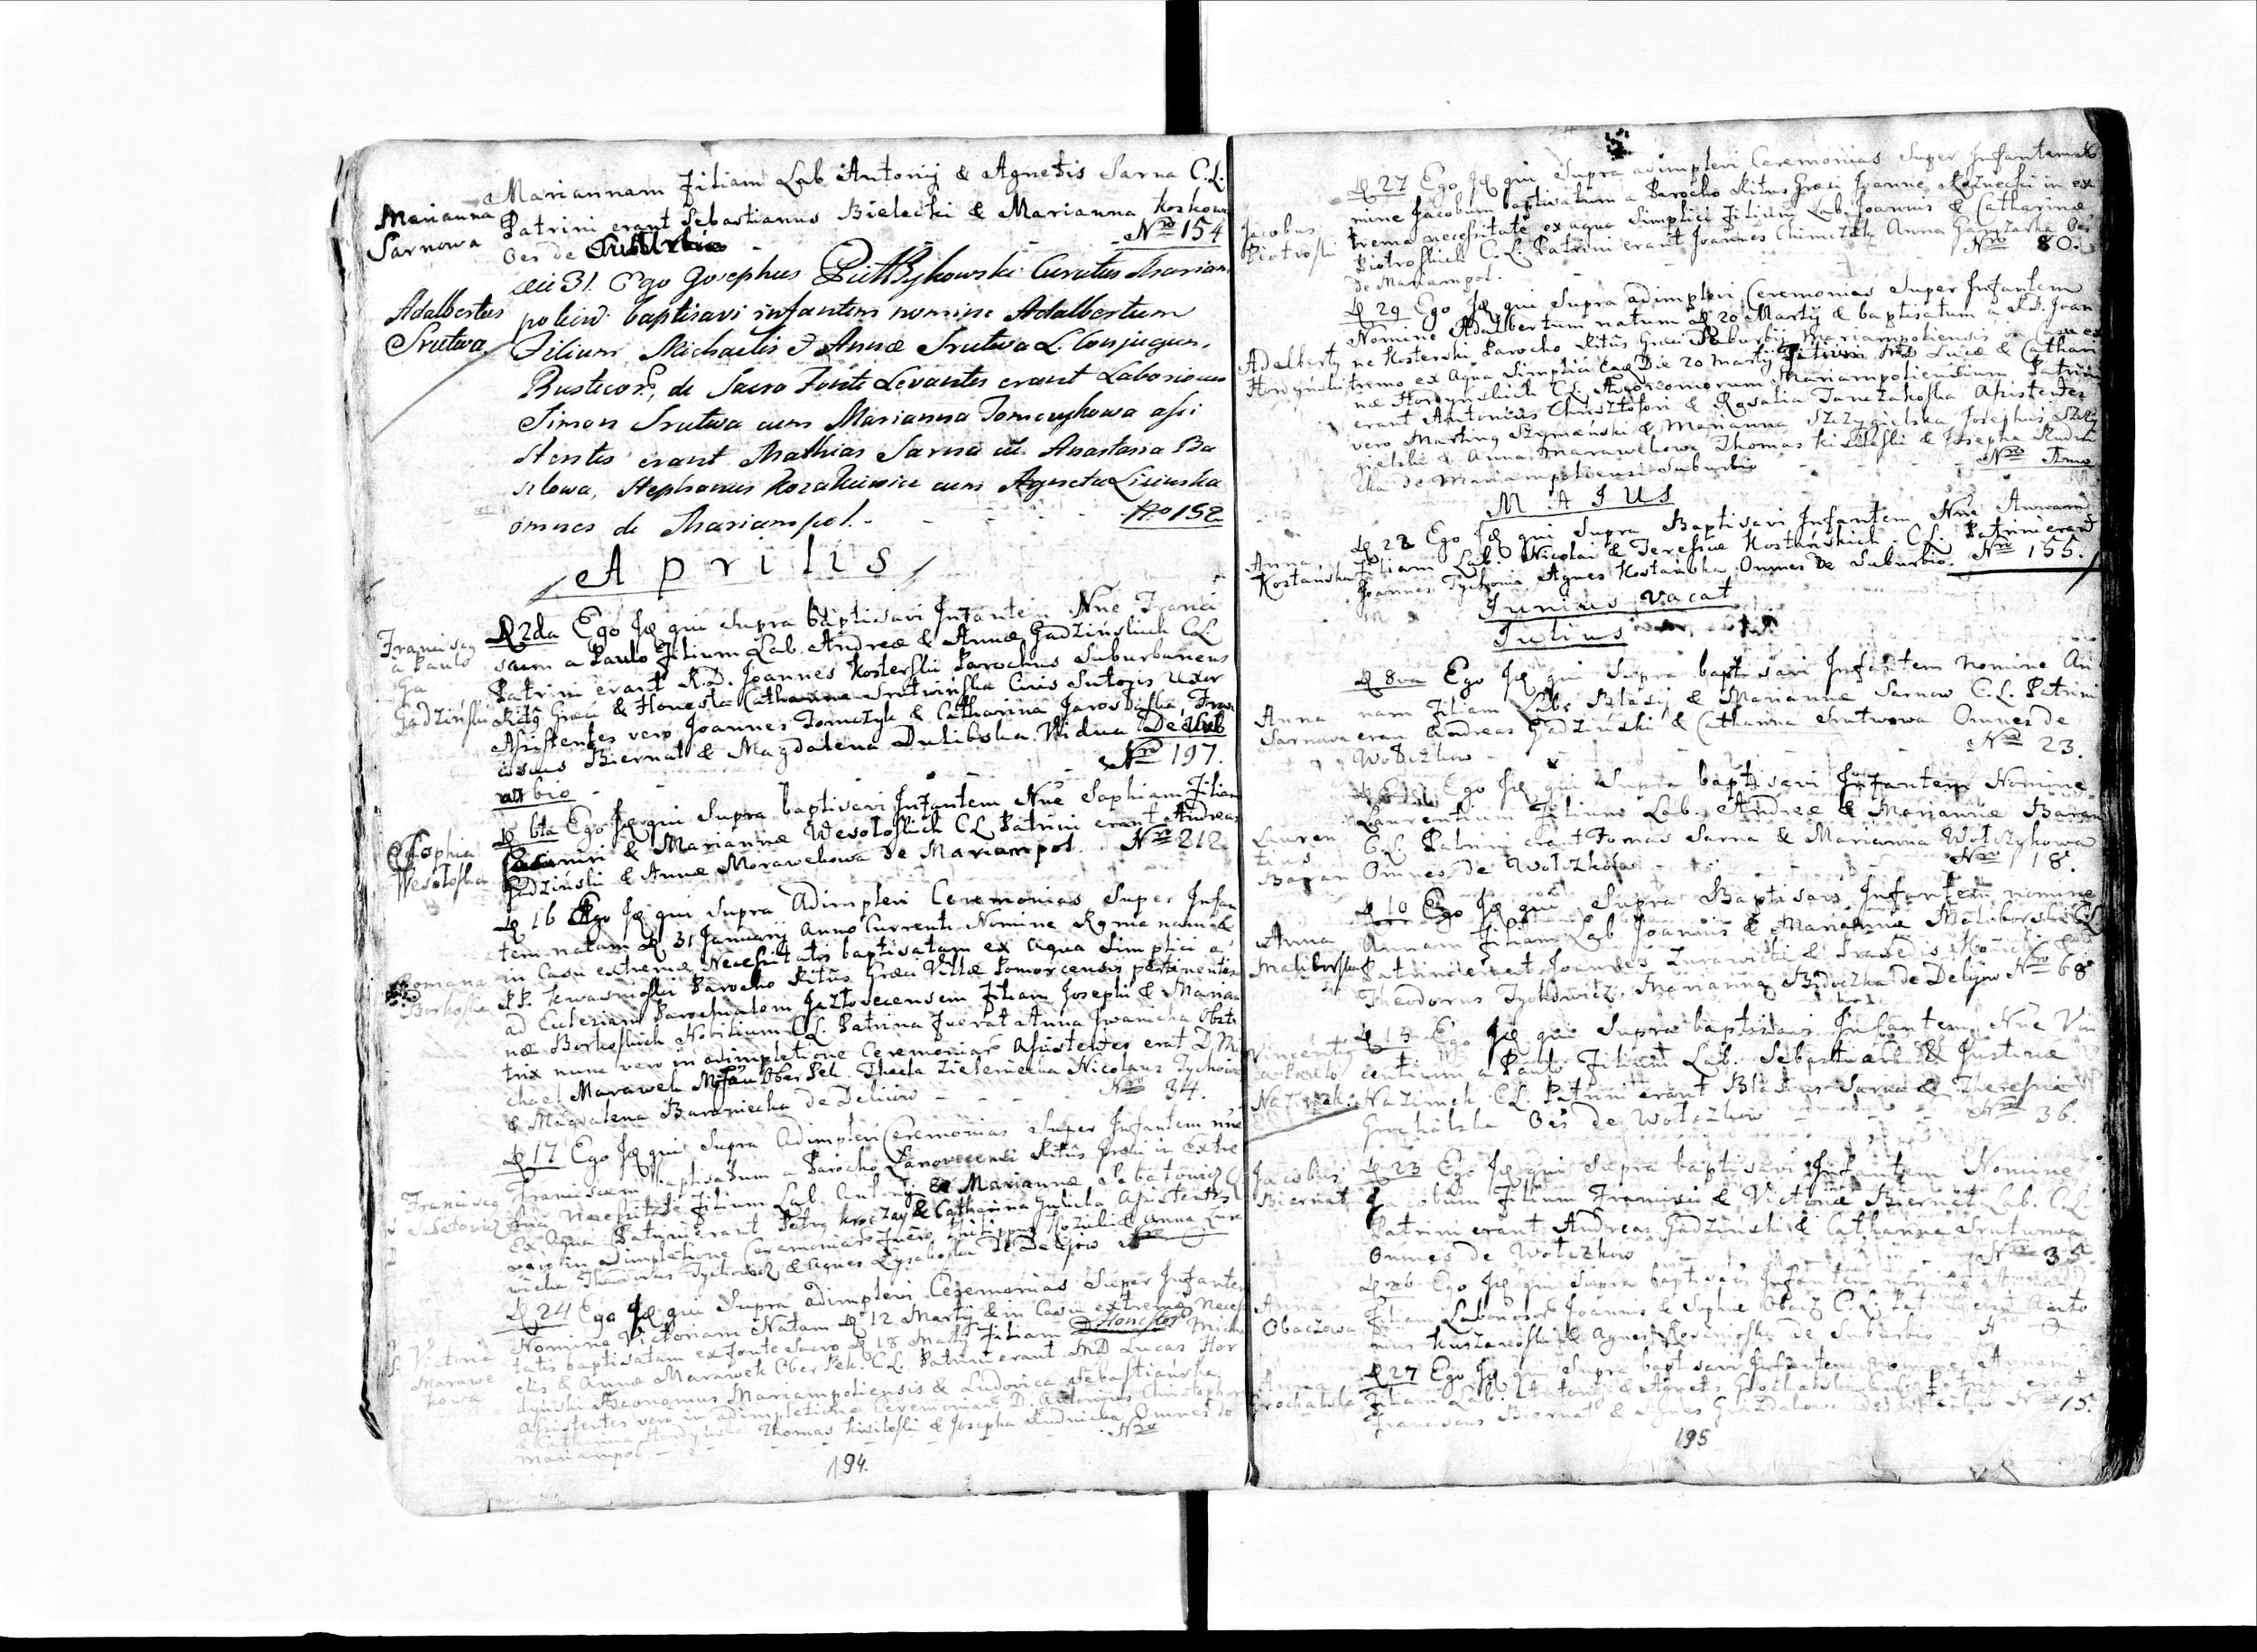 Mariannam Filiam Lab Antonij & Agnetis Sarna C.L.
Marianna Sarnowa
Patrini erant Sebastianus Bielecki & Marianna Koskowa
Oes de
Nro 154
Die 31. Ego Josephus Curatus Mariam
Adalbertus Srutwa
polien. baptisavi infantem nomine Adalbertum
Filium Michaelis & Annæ Srutwa L. Conjugum
Rusticor, de Sacro Fonte Levantes erant Laboriosus
Simon Srutwa cum Marianna Tomczykowa assi
stentes erant Mathias Sarna cum Anastasia Ba
Stephanus Kozakiewicz cum Agneta Lisinska
omnes de Mariampol. - - - - No 152
Aprilis
Franciscus a Paulo Gadziński
2da Ego Jd qui Supra baptisavi Infantem Nne Franci
scum a Paulo Filium Lab. Andreæ & Annæ Gadzińskich C.L.
Patrini erant R.D. Joannes Kosterski Parochus Suburbanens
Ritus Græci & Honesta Catharina Srutwińska Civis Sutoris Uxor
Assistentes vero Joannes Tomczyk & Catharina Jarosbaska, Fran
ciscus Biernat & Magdalena Dulibska Vidua De Sub
urbio - Nro 197.
Sophia Wesołoska
6ta Ego Jd qui Supra baptisavi Infantem Nne Sophiam Filiam
Casimiri & Mariannæ Wesołoskich C.L. Patrini erant Andreas
Gadziński & Anna Morawekowa de Mariampol. Nro 212
Romana Borkoska
16 Ego Jd qui Supra Adimplevi Ceremonias Super Infan
tem natam 31 Januarij Anno Currenti Nomine
in Casu extremæ Necessitatis baptisatam ex Aqua Simplici a
R.P. Parocho Ritus Græci Villæ Pomorcensis pertinentis
ad Eclesiam Parochialem Jazłovecensem Filiam Josephi & Marian
næ Borkoskich Nobilium C.L. Patrina fuerat Anna Iwanicka Obste
trix nunc vero in adimpletione Ceremoniar Assistentes erat D. Mi
chael Marawek Ober Thecla Zieleniecka Nicolaus Tychowicz
& Magdalena Baraniecka de Deliiow - - - Nro 34.
Franciscus Sabatowicz
17 Ego Jd qui Supra Adimplevi Ceremonias Super Infantem nne
Franciscum baptisatum a Parocho Łanovecensi Ritus Græci in Extre
ma Necessitate Filium Lab. Antonij & Mariannæ Sabatowicz
Ex Aqua Patrini erant Petrus & Catharina Gulicka Assistentes
vero in Adimpletione Ceremoniar fuere Philippus & Anna Zura
wicka Theodorus Tychowicz & Agnes Łysakoska de Delijow Nro
Victoria Marawekowa
24 Ego Jd qui Supra adimplevi Ceremonias Super Infantem
Nomine Victoriam Natam 12 Martij & in Casu extremæ Neces
tatis baptisatam ex fonte Sacro 18 Martij Filiam Honestor Micha
elis & Annæ Marawek Ober C.L. Patrini erant MD Lucas Hor
dyński Æconomus Mariampoliensis & Ludovica Sebastiańska
Assistentes vero in adimpletione Ceremoniar D. Antonius Christophori
& Catharina Hordyńska Thomas Kisiloski & Josepha Rudnicka Omnes de
Mariampol - - - - Nro
194.
27 Ego Jd qui Supra adimplevi Ceremonias Super Infantem No
Jacobus Piotroski
mine Jacobum baptisatum a Parocho Ritus Græci Joanne in ex
trema necessitate ex aqua Simplici Filium Lab. Joannis & Catharinæ
Piotroskich C.L. Patrini erant Joannes Chimczak Anna Oes
de Mariampol. Nro 80.
29 Ego Jd qui Supra adimplevi Ceremonias Super Infantem
Nomine Adalbertum natum 20 Martij & baptisatum a R.D. Joan
Adalbertus Hordyński
ne Kosterski Parocho Ritus Græci Suburbij Mariampoliensis in Casu ex
tremo ex Aqua Simplici Die 20 Martij Filium MD Lucæ & Cathari
næ Hordyńskich C.L. Æconomorum Mariampoliensium Patrini
erant Antonius Chrisztofori & Rosalia Assistentes
vero Martinus Szymański & Marianna Szczygielska Josephus Szczy
gielski & Anna Marawekowa Thomas Kisiloski & Josepha Rudni
cka de Mariampoliensi Suburbio - - - Nro
MAJUS
Anna Kostańska
22 Ego Jd qui Supra Baptisavi Infantem Nne Annam
Filiam Lab. Nicolai & Teressiæ Kostańskich C.L. Patrini erant
Joannes Tychonia Agnes Kostańska Omnes de Suburbio. Nro 155.
Junius vacat
Julius
Anna Sarnowa
8va Ego Jd qui Supra baptisavi Infantem Nomine An
nam Filiam Lab. Blasij & Mariannæ Sarnow C.L. Patrini
eran Andreas Gadziński & Catharina Srutwowa Omnes de
Wołczkow - - - Nro 23.
Laurentius Baran
Ego Jd qui Supra baptisavi Infantem Nomine
Laurentium Filium Lab. Andreæ & Mariannæ Baran
C.L. Patrini erant Tomas Sarna & Marianna Wołczykowa
Omnes de Wołczkow - - Nro 18.
Anna Maliborska
10 Ego Jd qui Supra Baptisavi Infantem nomine
Annam Filiam Lab Joannis & Mariannæ Maliborski C.L.
Patrini erant Joannes Zurawicki & Praxedis
Theodorus Tychowicz, Marianna de Delijow Nro 68
Vincentius a Paulo Nazimek.
13 Ego Jd qui Supra baptisavi Infantem Nne Vin
centium a Paulo Filium Lab. Sebastiani & Justinæ
Nazimek C.L. Patrini erant Blasius Sarna & Theressia
Grochalska Oes de Wołczkow - - Nro 36.
Jacobus Biernat
23 Ego Jd qui Supra baptisavi Infantem Nomine
Jacobum Filium Francisci & Victoriæ Biernat Lab. C.L.
Patrini erant Andreas Gadziński & Catharina Srutwowa
Omnes de Wołczkow - - Nro 35
Anna Obaczowa
26 Ego Jd qui Supra baptisavi Infantem nomine Annam
Filiam Laboriosor Joannis & Sophiæ Obacz C.L. Patrini erant Anto
nius & Agnes de Suburbio N
Anna Grochalska
27 Ego Jd qui Supra baptisavi Infantem nomine Annam
Filiam Lab. Antonij & Agnetis Grochalski C.L. Patrini erant
Franciscus Biernat & Agnes Gwizdałowa de Wołczkow Nro 15.
195